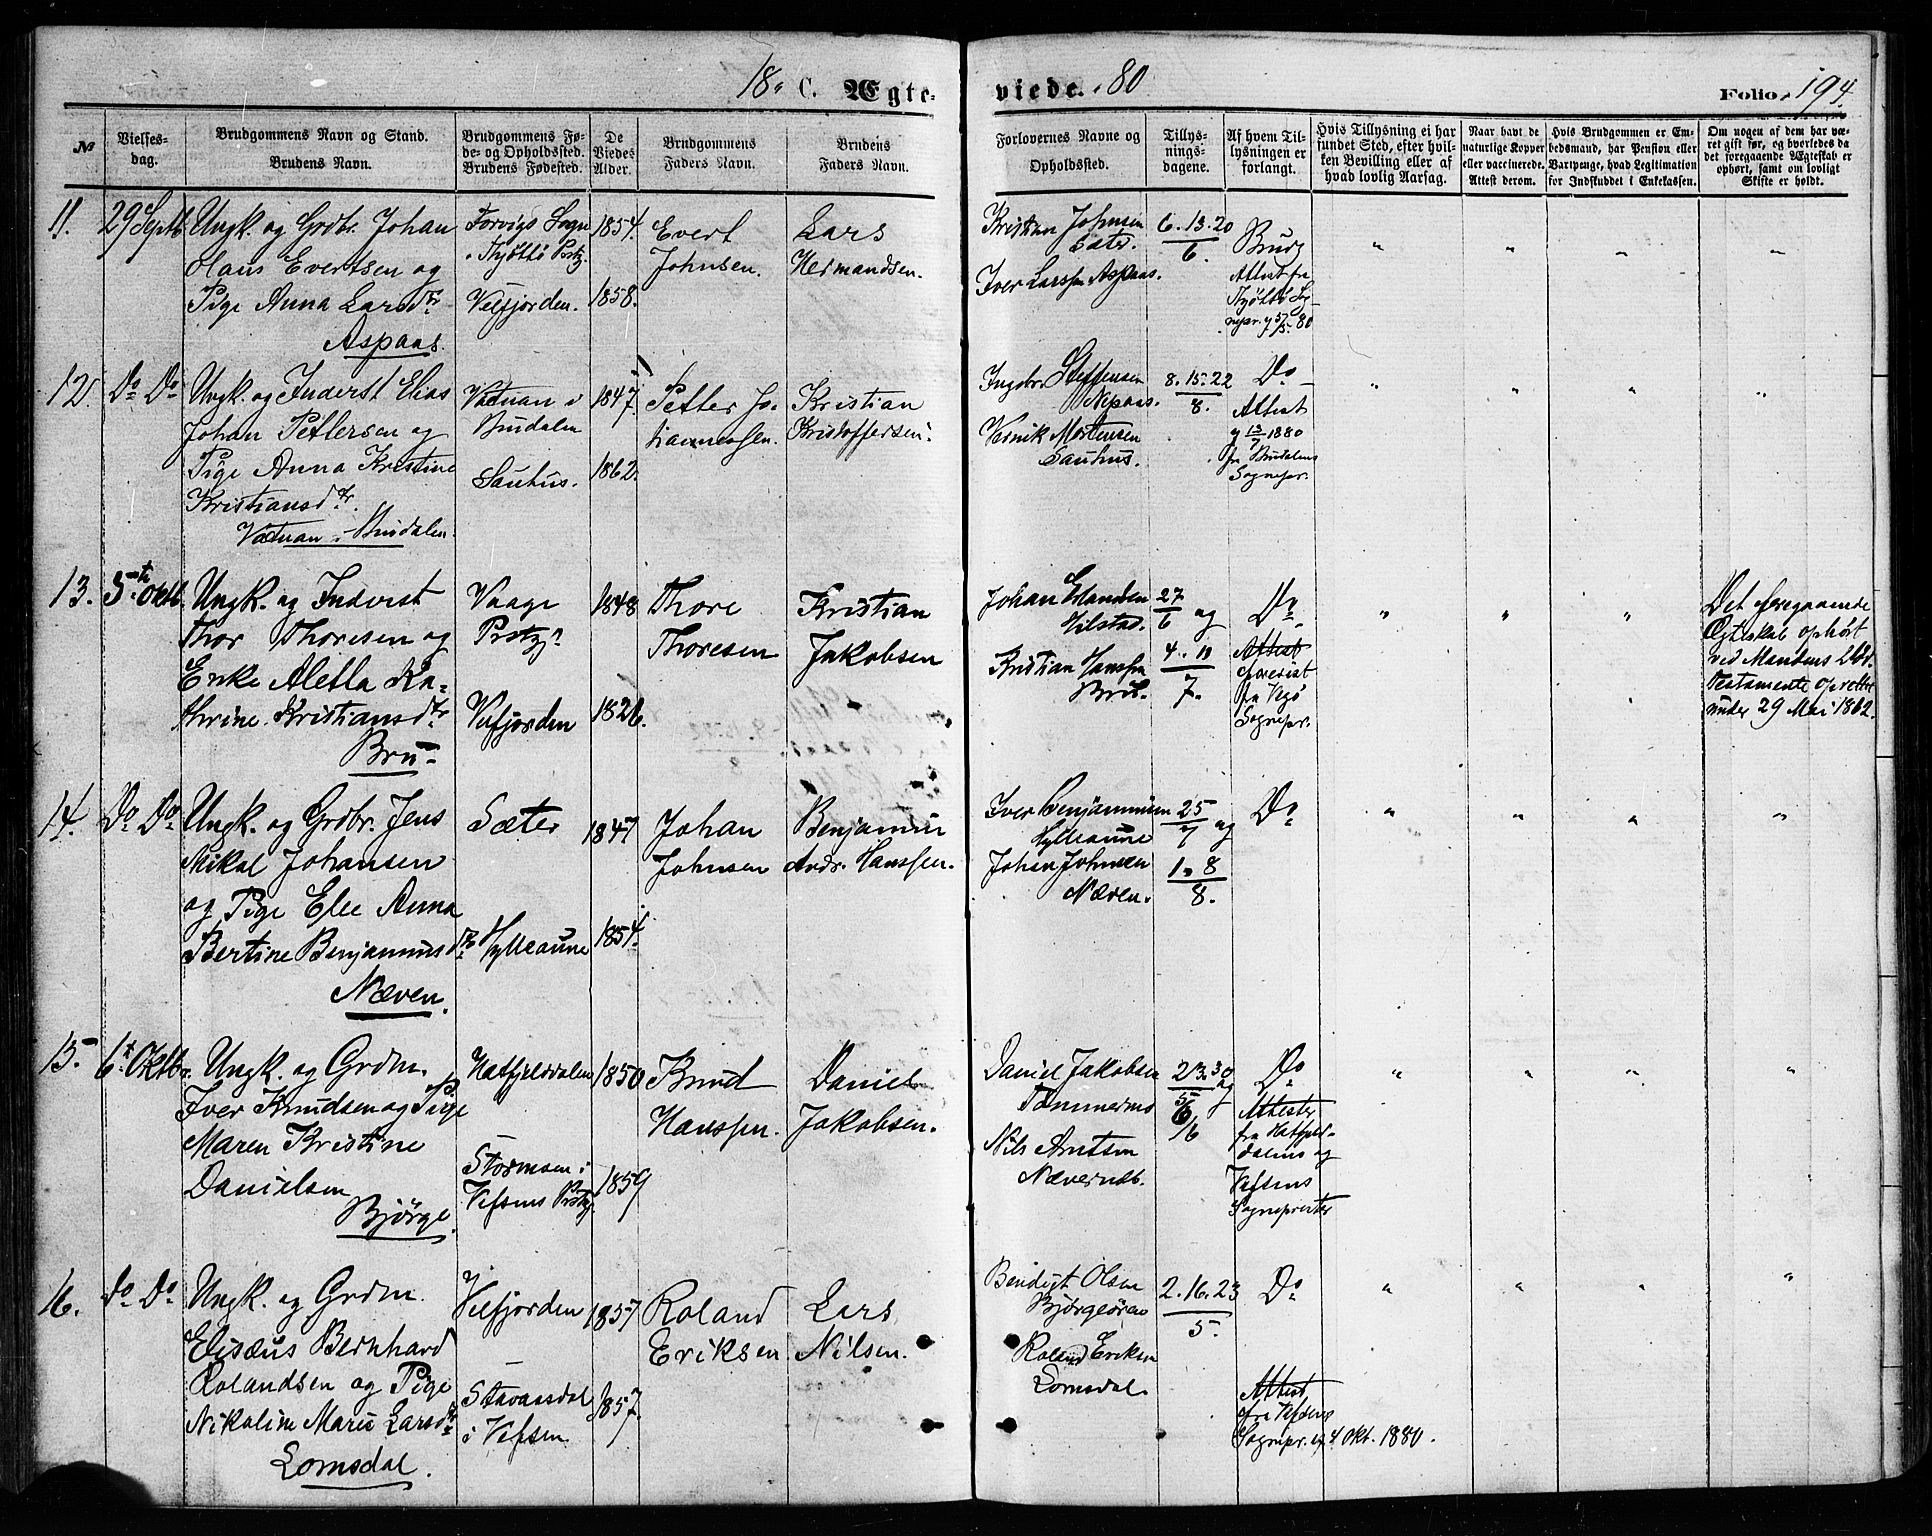 18 C. Ægte-
viede. 80
Folio. 194.
№
Vielses-
dag.
Brudgommens Navn og Stand.
Brudens Navn.
Brudgommens Fø-
de- og Opholdssted.
Brudens Fødested.
De
Viedes
Alder.
Brudgommens
Faders Navn.
Brudens
Faders Navn.
Forlovernes Navne og
Opholdssted.
Tillys-
nings-
dagene.
Af hvem Til-
lysningen er
forlangt.
Hvis Tillysning ei har
fundet Sted, efter hvil-
ken Bevilling eller af
hvad lovlig Aarsag.
Naar havt de
naturlige Kopper
eller vaccinerede.
Attest derom.
Hvis Brudgommen er Em-
bedsmand, har Pension eller
Vartpenge, hvad Legitimation
for Indskuddet i Enkekassen.
Om nogen af dem har væ-
ret gift før, og hvorledes da
det foregaaende Ægteskab er
ophørt, samt om lovligt
Skifte er holdt.
11.
29 Septb.
Ungk. og Grdbr. Johan
Olaus Evertsen og
Pige Anna Larsdtr
Aspaas.
Forvigs Sogn
i Tjøttø Prstg.
Velfjorden.
1854.
1858.
Evert
Johnsen.
Lars
Hermandsen.
Kristian Johnsen
Sæter.
Iver Larssen Aspaas.
6. 13. 20
6.
Brudg
Attest fra
Tjøttø Sog-
nepr. 80
12.
Do Do
Ungk. og Inderst Elias
Johan Pettersen og
Pige Anna Kristine
Kristiansdtr.
Vatnan i Bindalen.
Vatnan i
Bindalen
Sauhus.
1847.
1862.
Petter Jo-
hannessen.
Kristian
Kristoffersen.
Ingebr. Steffensen
Nepaas.
Mortensen
Sauhus.
8. 15. 22
8.
Do
Attest
13/7 1880
fr Bindalens
Sognepr.
13.
5te Oktb.
Ungk. og Inderst
Thor Thoresen og
Enke Aletta Ka-
thrine Kristiansdtr
Bru
Vaage
Prstgj
Velfjorden
1848
1826.
Thore
Thoresen
Kristian
Jakobsen
Johan
Kristian Hanssen
Bru.
27
6 og
4. 11
7.
Do.
Attest
fra Vegø
Sognepr.
Det foregaaende
Ægteskab ophørt
ved Mandens Død.
Testamente oprettet
under 29 Mai 1862.
14.
Do Do
Ungk. og Grdbr. Jens
Mikal Johansen
og Pige Elee Anna
Bertine Benjaminsdtr
Næven.
Sæter
Hylleaune
1847
1854.
Johan
Johnsen
Benjamin
Andr. Hanssen.
Iver Benjaminsen
Hylleaune
Johan Johnsen
Næven.
25
7 og
1. 8
8.
Do
15.
6t Oktbr.
Ungk. og Grdm.
Iver Knudsen og Pige
Maren Kristine
Danielsen
Bjørge.
Hatfjelddalen
Stormoen i
Vefsens Prstg.
1850
1859
Knud
Hanssen.
Daniel
Jakobsen.
Daniel Jakobsen
Tømmermo
Nils Arntsen
23. 30
5 og
6
Do
Attester
fra Hatfjeld-
dalens og
Vefsens
Sogneprester
16.
Do Do
Ungk. og Grdm.
Elisæus Bernhard
Rolandsen og Pige
Nikoline Marie Larsdtr
Lomsdal.
Velfjorden
Stavassdal
i Vefsen
1857
1857.
Roland
Eriksen
Lars
Nilsen.
Bendigt Olsen
Bjørgeøren
Roland Eriksen
Lomsdal.
2. 16. 23
5.
Do
Attest
fra Vefsens
Sognepr. af 4 Okt. 1880.